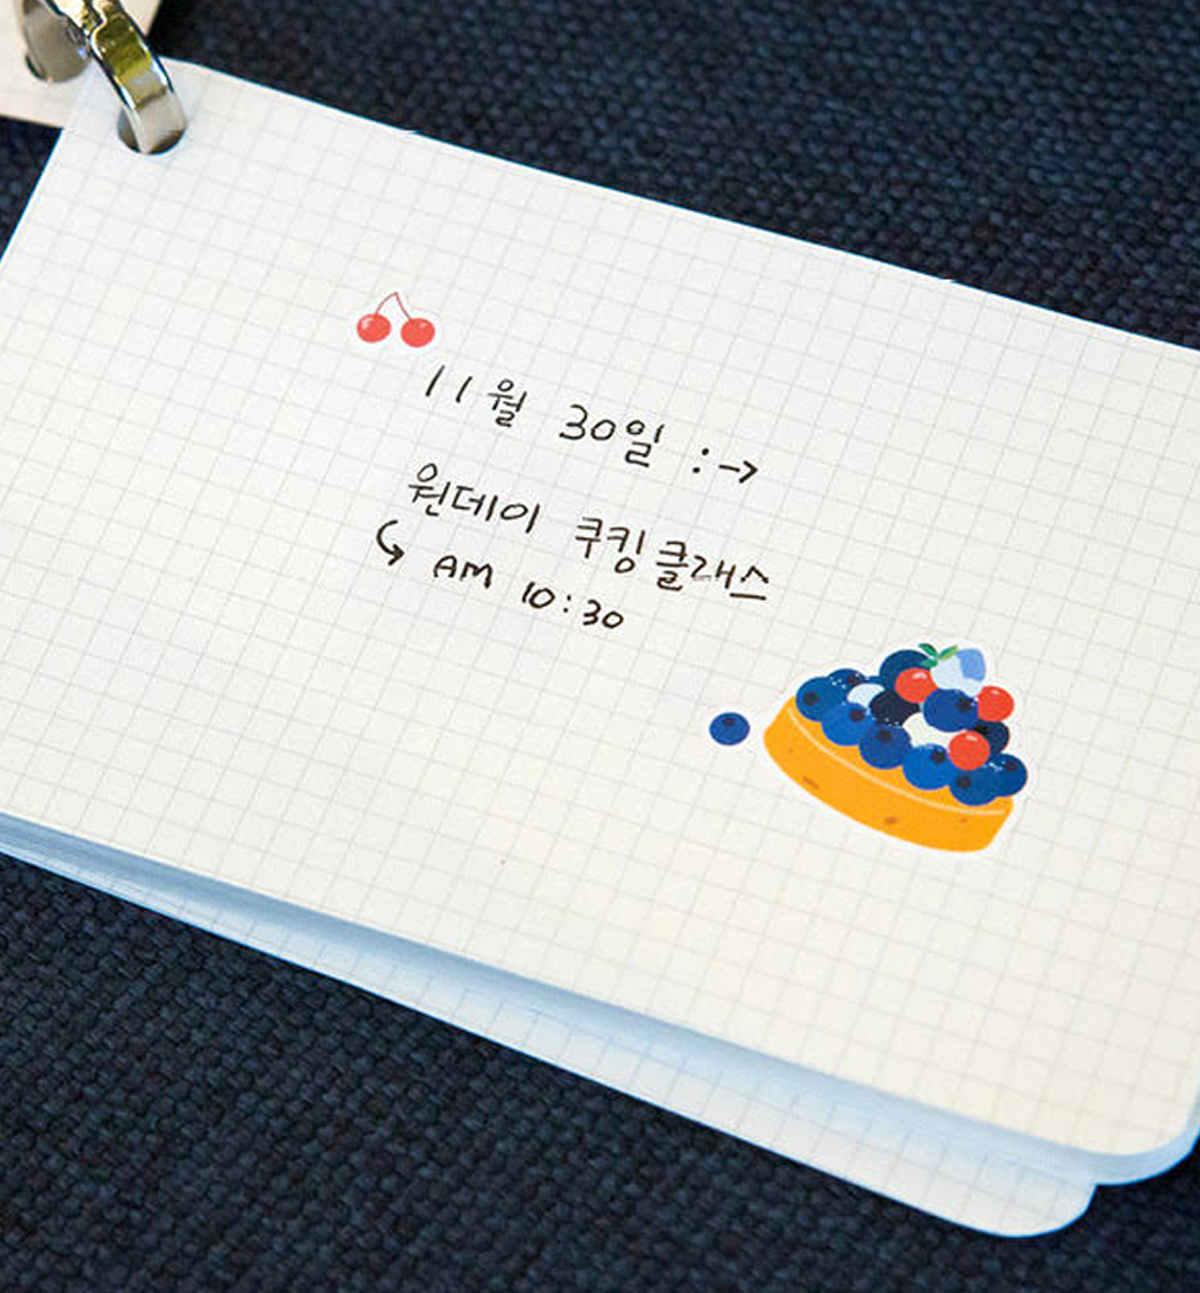 11월 30일 :→
원데이 쿠킹클래스
↳ AM 10:30